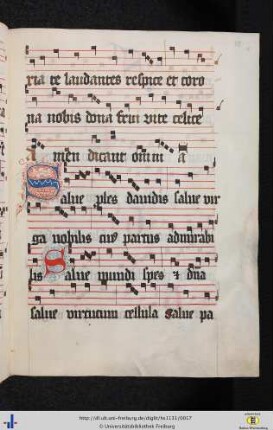 ria te laudantes respice et coro
na nobis dona frui vite celice
A men dicant omnia
Salve ples davidis salve vir
ga nobilis cuius partus admirabi
lis Salve mundi spes et dna
salve virtutum cellula Salve pa
http://dl.ub.uni-freiburg.de/diglit/hs1131/0017
© Universitätsbibliothek Freiburg